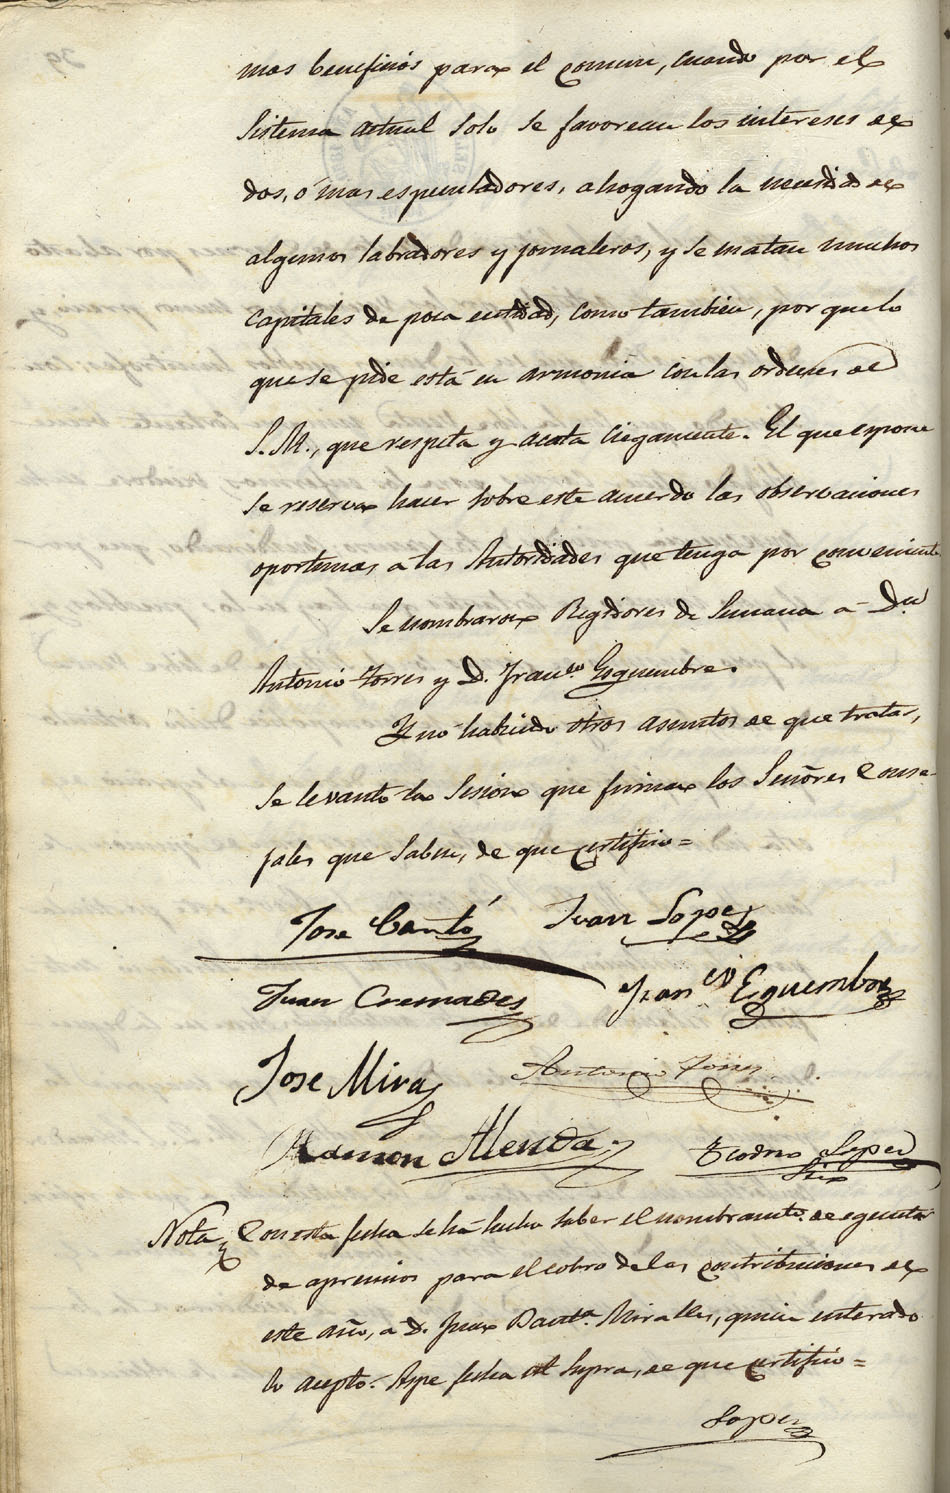 mas beneficios para el comun, cuando por el
Sistema actual solo se favorecen los intereses de
dos, ó mas especuladores, ahogando la necesidad de
algunos labradores y jornaleros, y se matan muchos
Capitales de poca entidad, como tambien, por que lo
que se pide está en armonia con las ordenes de
S. M., que respeta y acata ciegamente. El que espone
se reserva hacer sobre este acuerdo las observaciones
oportunas a las Autoridades que tenga por conveniente
Se nombraron Regidores de Semana a Dn
Antonio Torres y D. Franco. Esquembre.
Y no habiendo otros asuntos de que tratar,
se levantó la Sesion que firman los Señores Conse-
jales que saben, de que certifico =
Jose Cantó Juan Lopez
Juan Cremades Franco Esquembre
Jose Mira Antonio Torres
Ramon Alenda Teodoro Lopez
Srio
Nota Con esta fecha se há hecho saber el nombramto. de egecutor
de apremios para el cobro de las contribuciones de
este año, á D. Juan Bauta. Miralles, quien enterado
lo aceptó. Aspe fecha ut Supra, de que certifico =
Lopez